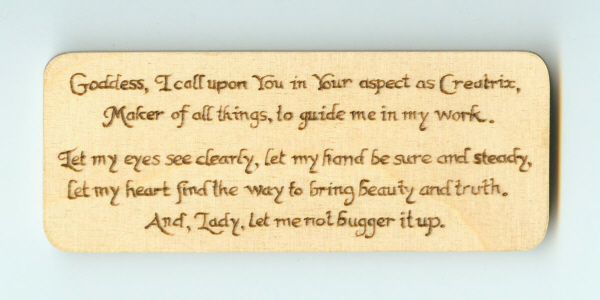 Goddess, I call upon You in Your aspect as Creatrix,
Maker of all things, to guide me in my work.
Let my eyes see clearly, let my hand be sure and steady,
let my heart find the way to bring beauty and truth.
And, Lady, let me not bugger it up.